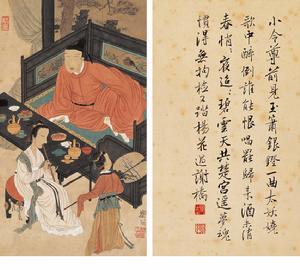 小令尊前見玉簫銀鐙一曲太妖嬈
歌中醉倒誰能恨唱罷歸來酒未消
春悄﹦夜迢﹦碧雲天共楚宮遙夢魂
慣得無拘檢又踏楊花過謝橋